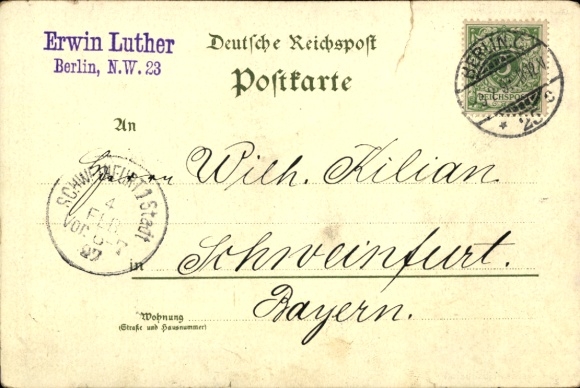 Erwin Luther
Berlin, N.W. 23
Deutsche Reichspost
Postkarte
REICHSPOST
BERLIN C.
* 25 c
An
Herrn Wilh. Kilian
SCHWEINFURT 1 Stadt
4
FEB.
VOR 6-7
97
in Schweinfurt.
Bayern.
Wohnung
(Straße und Hausnummer)